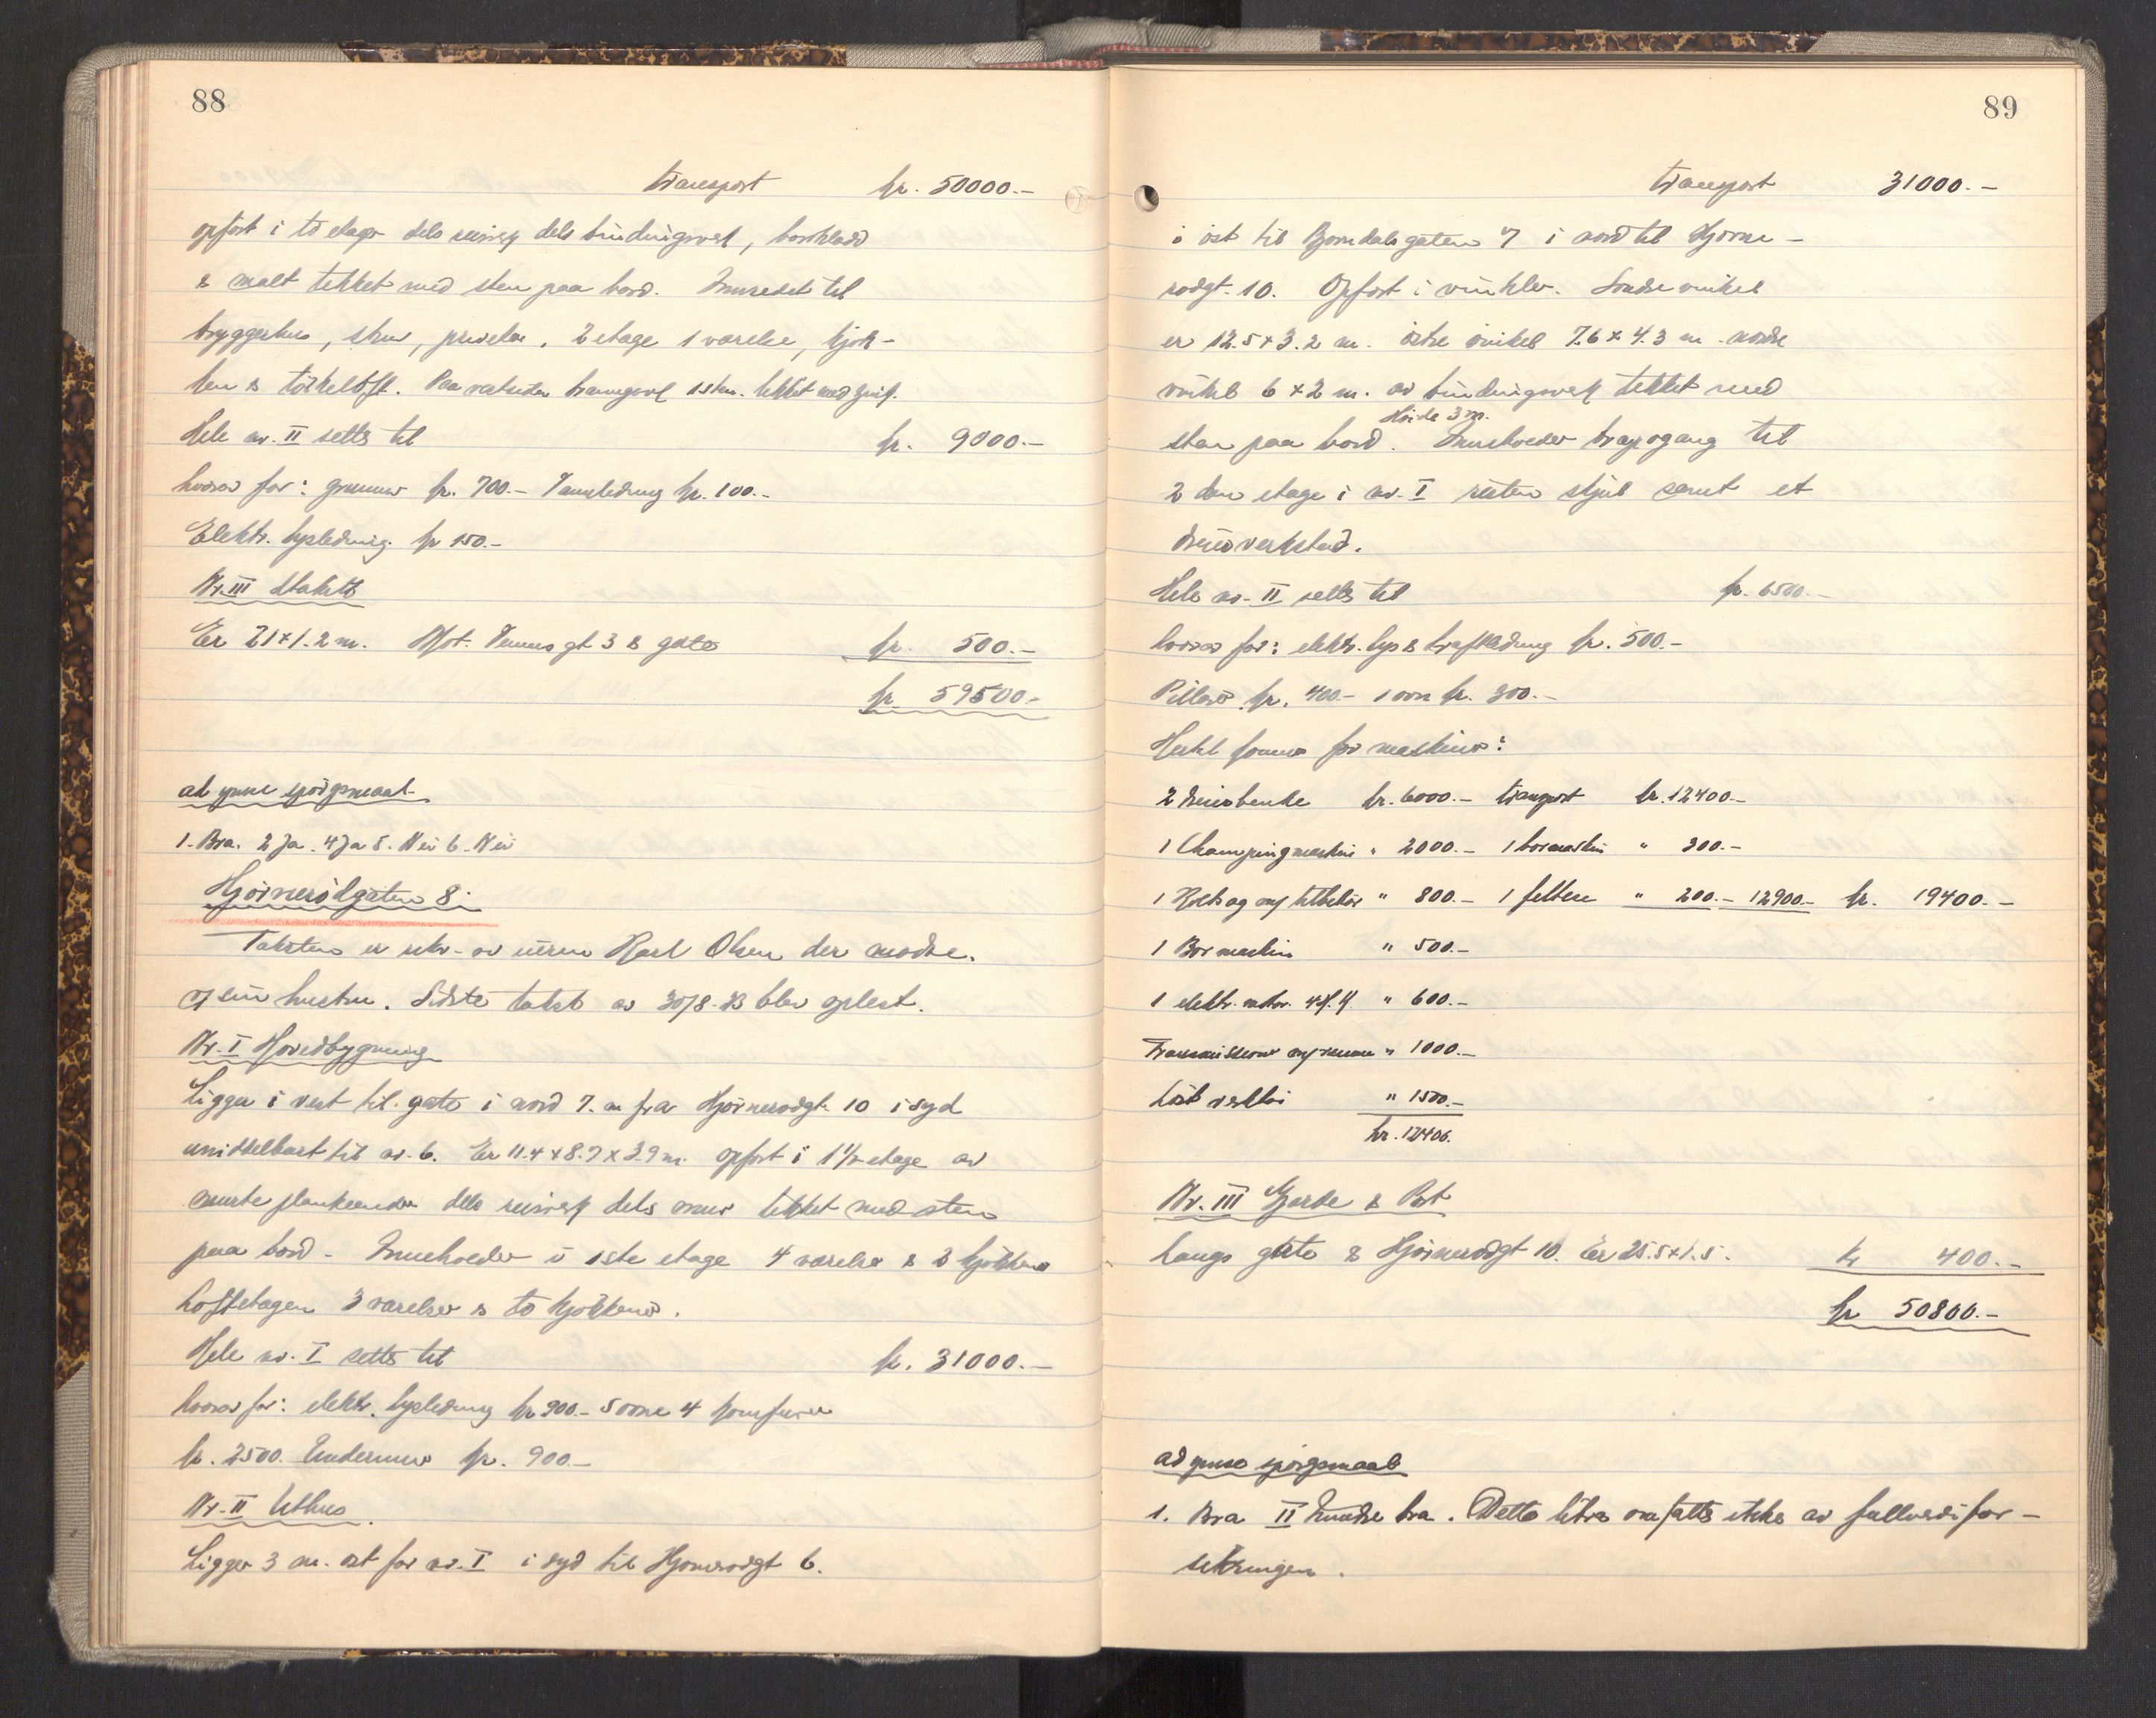 88
transport kr. 50000.-
opført i to etager dels reisverk dels bindingsverk, bordklædd
& malt tekket med sten paa bord. Innredet til
bryggerhus, skur, priveter. 2 etage 1 værelse, kjøk-
ken & tørkeloft. Paa vestsiden brannganvl 1 sten. tekket med zink.
Hele nr. II settes til kr. 9000.-
hvorav for: grunnmur kr. 700.- Vannledning kr. 100.-
Elektr. lysledning kr 150.-
Nr. III Stakitt
Er 21×1.2 m. Mot Venus gt 3 & gate kr. 500.-
kr 59500.-
ad ymse spørgsmaal
1. Bra. 2 Ja. 4 Ja 5. Nei 6. Nei
Hjørnerødgaten 8.
Taksten er rekv. av eieren Karl Olsen der møtte.
ved sin hustru. Sidste takst av 30/8-23 blev oplest.
Nr. I Hovedbygning
Ligger i vest til gate i nord 7. m fra Hjørnerødgt. 10 i syd
umiddelbart til nr. 6. Er 11.4 × 8.7 × 3.9 m. opført i 1 1/2 etage av
murte plankeender dels reisverk dels mur tekket med sten
paa bord - Inneholder i 1ste etage 4 værelser & 2 kjøkkener
Loftetagen 3 værelser & to kjøkkener.
Hele nr. I settes til kr. 31000.-
hvorav for: elektr. lysledning kr 900.- 5 ovne 4 komfurer
kr. 2500. Undermur kr. 900.-
Nr. II Uthus.
Ligger 3 m. øst for nr. I i syd til Hjørnerødgt 6.
89
transport 31000.-
i øst til Bjørndalsgaten 7 i nord til Hjørne-
rødgt. 10. Opført i vinkler. Søndre vinkel
er 12.5×3.2 m. østre vinkel 7.6×4.3 m. nordre
vinkel 6×2 m. av bindingsverk tekket med
Høide 3 m.
sten paa bord. Inneholder trapogang til
2 den etage i nr. I resten skjul samt et
dreierverksted.
Hele nr. II settes til kr. 6500.-
hvorav for: elektr. lys & kraftledning kr. 500.-
Pillarer kr. 400.- 1 ovn kr. 300.-
Hertil kommer for maskiner:
2 dreiebenke kr. 6000.- transport kr. 12400.-
1 Champingmaskin " 2000.- 1 bormaskin " 300.-
1 tilbehør " 800.- 1 feltesse " 200.- 12900.- kr. 19400.-
1 Bormaskin " 500.-
1 elektr. motor 4 H.K " 600.-
Transmisjoner og remmer " 1000.-
Løst verktøi " 1500.-
kr. 12400.
Nr. III Gjerde & Port
Langs gate & Hjørnerødgt 10. Er 25.5×1.5. kr 400.-
kr 50800.-
ad ymse spørgsmaal
1. Bra II Mindre bra. Dette litra omfattes ikke av fullverdifor-
sikringen.